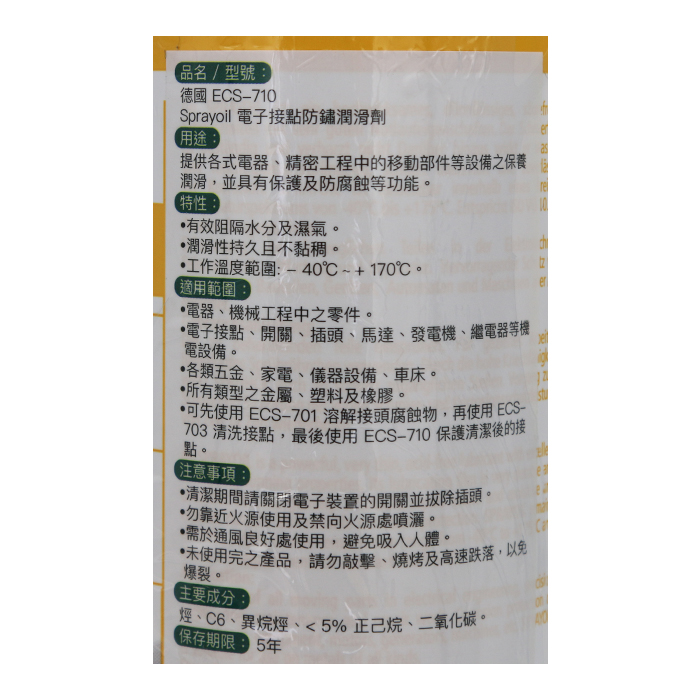 品名 / 型號：
德國 ECS-710
Sprayoil 電子接點防鏽潤滑劑
用途：
提供各式電器、精密工程中的移動部件等設備之保養
潤滑，並具有保護及防腐蝕等功能。
特性：
•有效阻隔水分及濕氣。
•潤滑性持久且不黏稠。
•工作溫度範圍: - 40℃ ~ + 170℃。
適用範圍：
•電器、機械工程中之零件。
•電子接點、開關、插頭、馬達、發電機、繼電器等機
電設備。
•各類五金、家電、儀器設備、車床。
•所有類型之金屬、塑料及橡膠。
•可先使用 ECS-701 溶解接頭腐蝕物，再使用 ECS-
703 清洗接點，最後使用 ECS-710 保護清潔後的接
點。
注意事項：
•清潔期間請關閉電子裝置的開關並拔除插頭。
•勿靠近火源使用及禁向火源處噴灑。
•需於通風良好處使用，避免吸入人體。
•未使用完之產品，請勿敲擊、燒烤及高速跌落，以免
爆裂。
主要成分：
烴、C6、異烷烴、< 5% 正己烷、二氧化碳。
保存期限： 5年